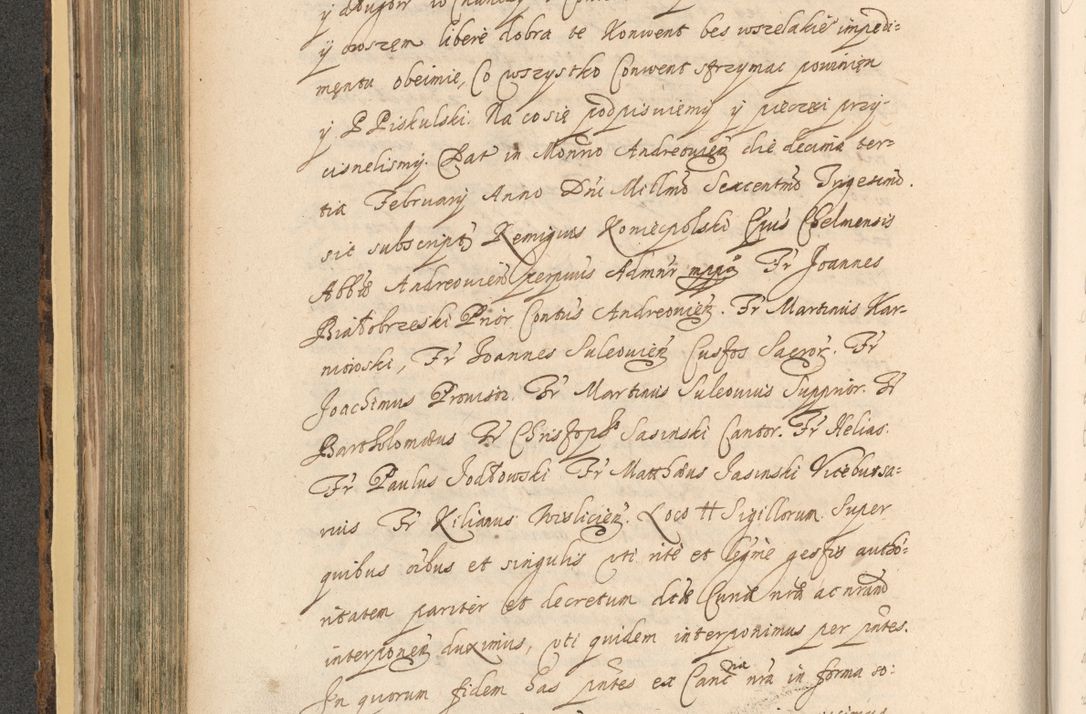 y oroszem libere dobra te Konwent bes wszelakie impedi-
mentu obeimie, Co wszystko Conwent strzymac powinien
y P Piskulski. Na co sie podpisuiemy y pieczęi przy-
cisnelismy. Dat in Monrio Andreouien die decima ter-
tia February Anno Dni Millmo Sexcentmo Trigesimo.
sic subscript Remigius Koniecpolski Epus Chelmensis
Abb Andreouien perpuus Admnr mppa Fr Joannes
Białobrzeski Prior Contus Andreouien. Fr Martinus Kar-
niowski, Fr Joannes Suleouien Custos Sacror. Fr
Joachimus Prouisor. Fr Martinus Suleouius Supprior. Fr
Bartholomæus Fr Christoph Sasinski Cantor. Fr Helias.
Fr Paulus Jodłowski Fr Matthæus Jasinski Viceburfa-
rius Fr Kilianus Wislicien. Loco H Sigillorum. Super
quibus oibus et singulis vti rite et legme gestis autho-
ritatem pariter et decretum dcti Cunæ nra ac nram
interponen duximus, vti quidem interponimus per pntes.
In quorum fidem has pntes ex Canc ria nra in forma so-